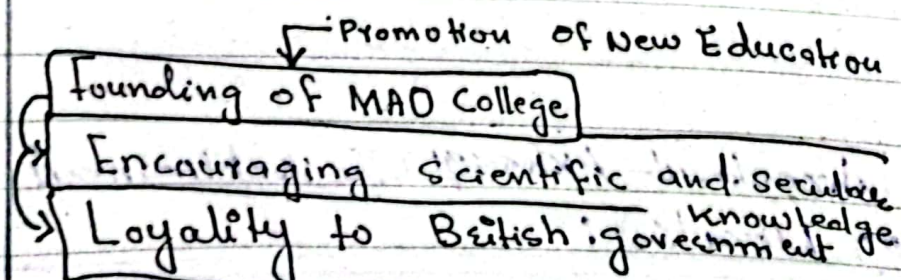 Promotion of New Education
Founding of MAO College
Encouraging scientific and secular
knowledge
Loyality to British government